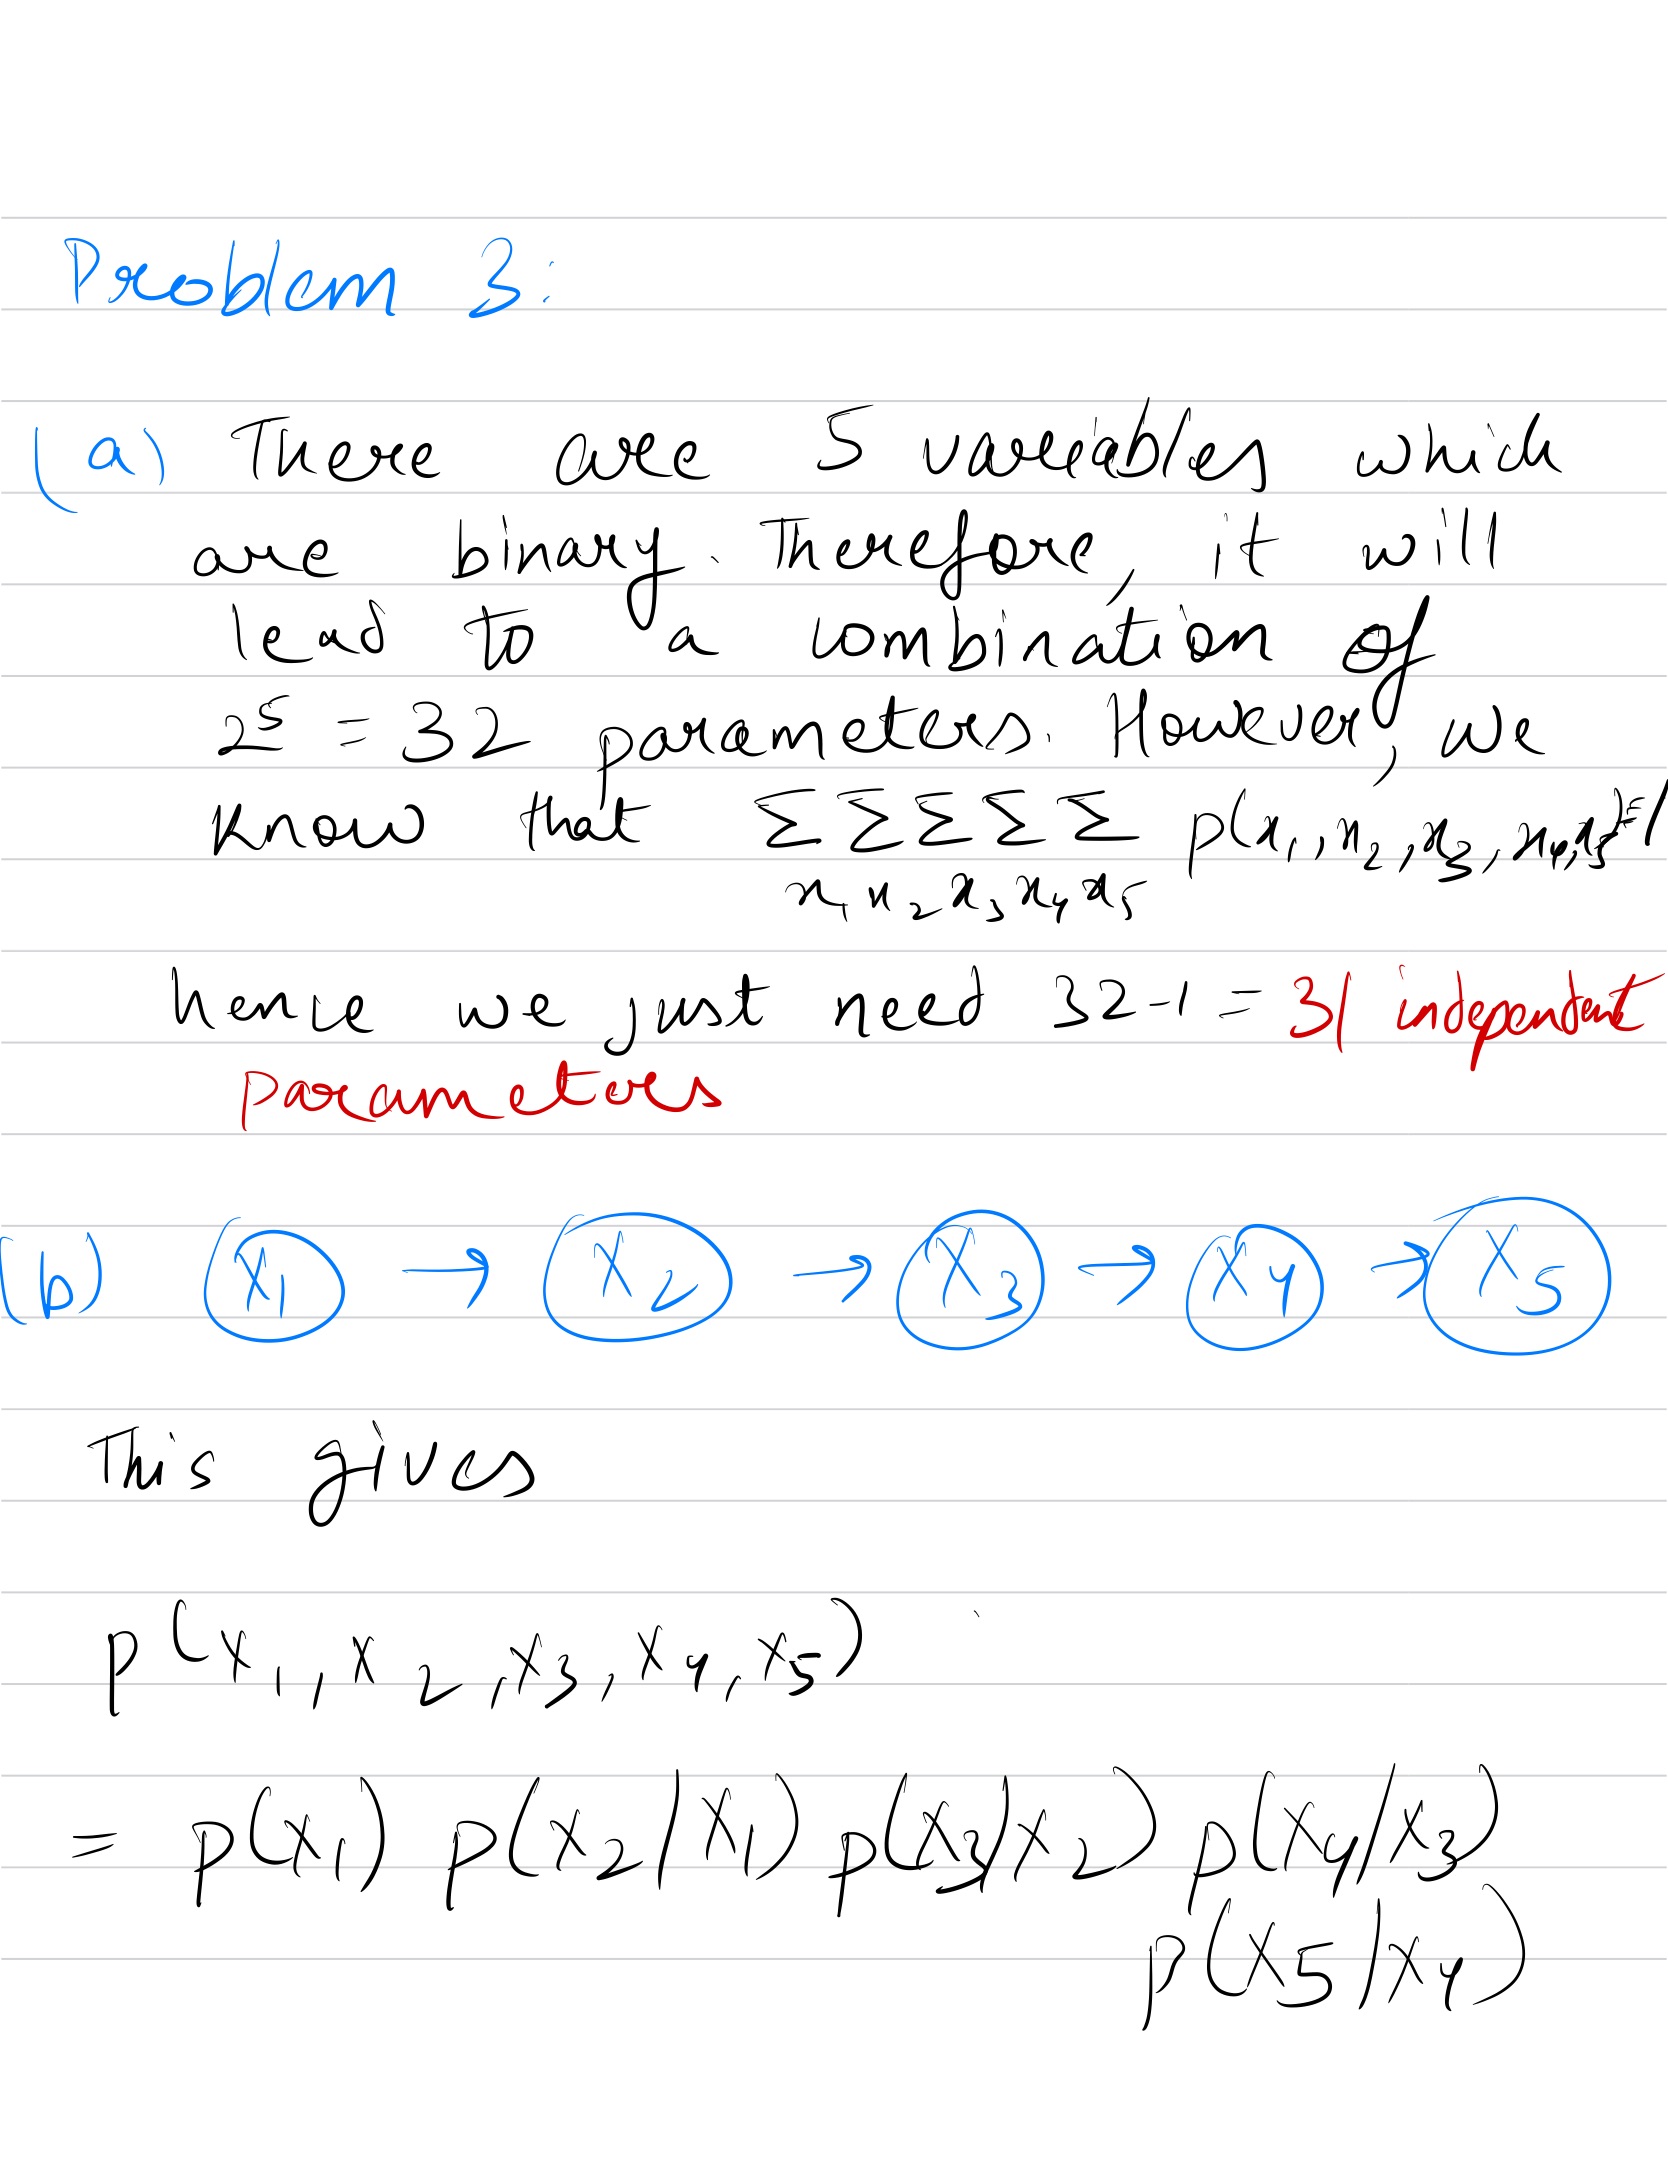 Problem 3:
(a) There are 5 variables which
are binary. Therefore, it will
lead to a combination of
2⁵ = 32 parameters. However, we
know that Σ Σ Σ Σ Σ p(x₁,x₂,x₃,x₄,x₅)=1
x₁ x₂ x₃ x₄ x₅
hence we just need 32-1 = 31 independent
parameters
(b) X₁ → X₂ → X₃ → X₄ → X₅
This gives
p(X₁,X₂,X₃,X₄,X₅)
= p(X₁) p(X₂|X₁) p(X₃|X₂) p(X₄|X₃)
p(X₅|X₄)